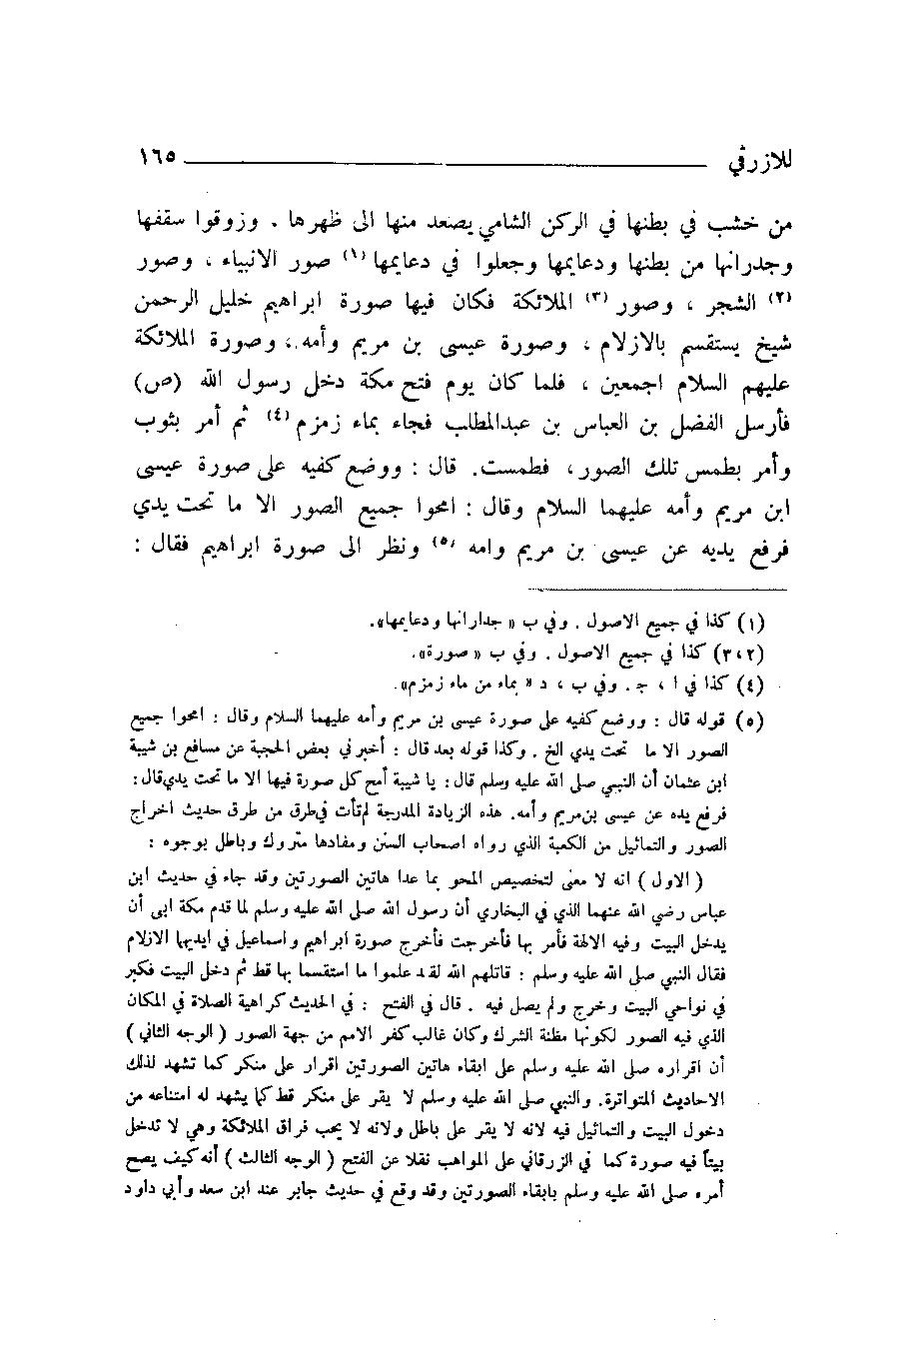 للازرقي ١٦٥
من خشب في بطنها في الركن الشامي يصعد منها الى ظهرها . وزوقوا سقفها
وجدرانها من بطنها ودعايمها وجعلوا في دعايمها (١) صور الانبياء ، وصور
(٢) الشجر ، وصور (٣) الملائكة فكان فيها صورة ابراهيم خليل الرحمن
شيخ يستقسم بالازلام ، وصورة عيسى بن مريم وأمه ، وصورة الملائكة
عليهم السلام اجمعين ، فلما كان يوم فتح مكة دخل رسول الله (ص)
فأرسل الفضل بن العباس بن عبدالمطلب فجاء بماء زمزم (٤) ثم أمر بثوب
وأمر بطمس تلك الصور ، فطمست . قال : ووضع كفيه على صورة عيسى
ابن مريم وأمه عليهما السلام وقال : امحوا جميع الصور الا ما تحت يدي
فرفع يديه عن عيسى بن مريم وامه (٥) ونظر الى صورة ابراهيم فقال :
(١) كذا في جميع الاصول . وفي ب « جدارانها ودعايمها».
(٢،٣) كذا في جميع الاصول . وفي ب « صورة».
(٤) كذا في ا ، ج . وفي ب ، د « بماء من ماء زمزم».
(٥) قوله قال : ووضع كفيه على صورة عيسى بن مريم وأمه عليهما السلام وقال : امحوا جميع
الصور الا ما تحت يدي الخ . وكذا قوله بعد قال : أخبرني بعض الحجبة عن مسافع بن شيبة
ابن عثمان أن النبي صلى الله عليه وسلم قال : يا شيبة أمح كل صورة فيها الا ما تحت يدي قال :
فرفع يده عن عيسى بن مريم وأمه. هذه الزيادة المدرجة لم تأت في طرق من طرق حديث اخراج
الصور والتماثيل من الكعبة الذي رواه اصحاب السنن ومفادها متروك وباطل بوجوه :
( الاول ) انه لا معنى لتخصيص المحو بما عدا هاتين الصورتين وقد جاء في حديث ابن
عباس رضي الله عنهما الذي في البخاري أن رسول الله صلى الله عليه وسلم لما قدم مكة ابى أن
يدخل البيت وفيه الالهة فأمر بها فأخرجت فأخرج صورة ابراهيم واسماعيل في ايديهما الازلام
فقال النبي صلى الله عليه وسلم : قاتلهم الله لقد علموا ما استقسما بها قط ثم دخل البيت فكبر
في نواحي البيت وخرج ولم يصل فيه . قال في الفتح : في الحديث كراهية الصلاة في المكان
الذي فيه الصور لكونها مظنة الشرك وكان غالب كفر الامم من جهة الصور ( الوجه الثاني )
أن اقراره صلى الله عليه وسلم على ابقاء هاتين الصورتين اقرار على منكر كما تشهد لذلك
الاحاديث المتواترة. والنبي صلى الله عليه وسلم لا يقر على منكر قط كما يشهد له امتناعه من
دخول البيت والتماثيل فيه لانه لا يقر على باطل ولانه لا يحب فراق الملائكة وهي لا تدخل
بيتاً فيه صورة كما في الزرقاني على المواهب نقلا عن الفتح ( الوجه الثالث ) أنه كيف يصح
أمره صلى الله عليه وسلم بابقاء الصورتين وقد وقع في حديث جابر عند ابن سعد وأبي داود